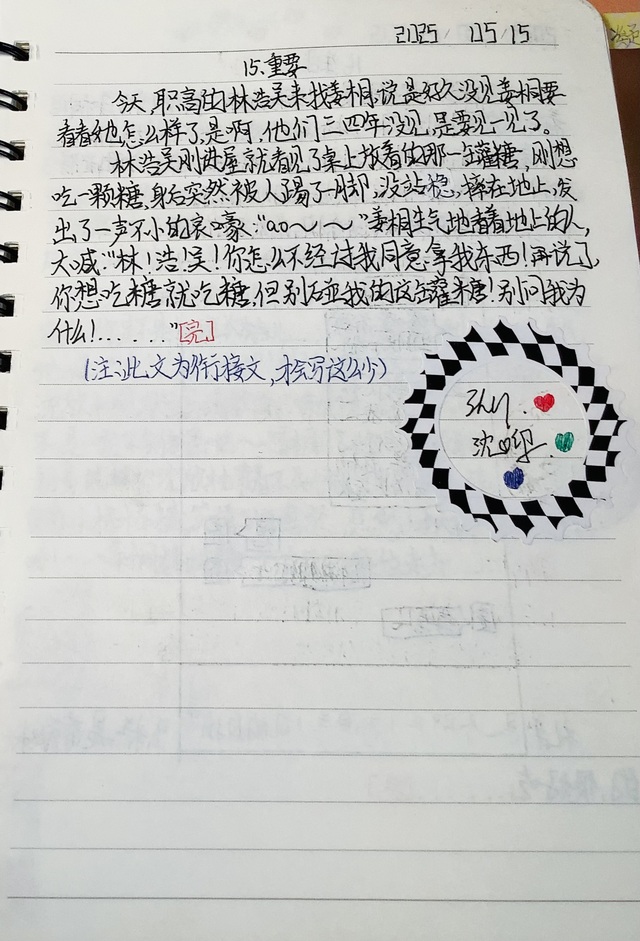 2025/05/15
15.重要
今天,职高的林浩吴来找姜桐,说是好久没见姜桐要
看看她怎么样了,是啊,他们三四年没见,是要见一见了。
林浩吴刚进屋就看见了桌上放着的那一罐糖,刚想
吃一颗糖,身后突然被人踢了一脚,没站稳,摔在地上,发
出了一声不小的哀嚎:“ao～～～”姜桐生气地看着地上的人,
大喊:“林!浩!吴!你怎么不经过我同意拿我东西!再说了,
你想吃糖就吃糖,但别碰我的这罐糖!别问我为
什么!......”[完]
(注:此文为衔接文,才会写这么少)
沈